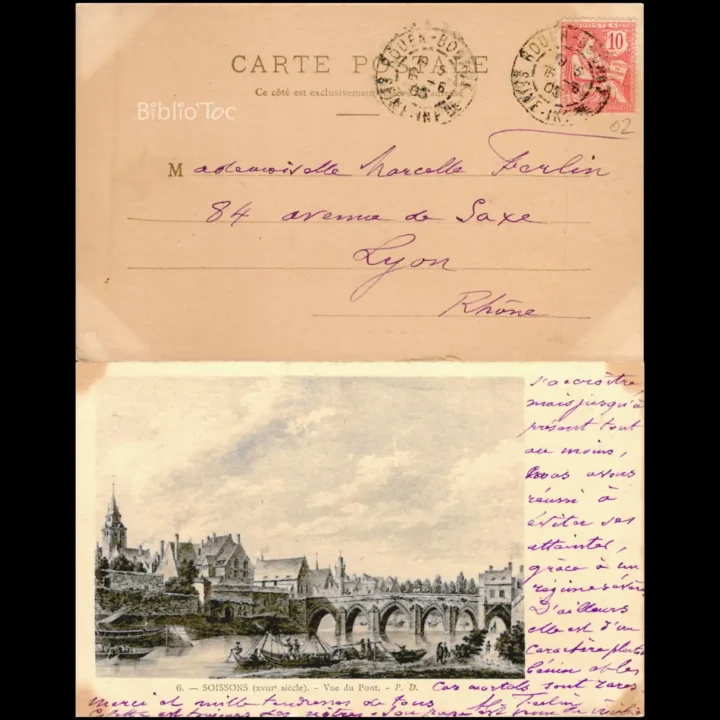 CARTE POSTALE
Ce côté est exclusivement
Biblio'Toc
ROUEN-BOURSE
10
02
Mademoiselle Marcelle Ferlin
84 avenue de Saxe
Lyon
Rhône
s'accroître,
mais jusqu'à
présent tout
au moins,
nous avons
réussi à
éviter ses
atteintes,
grâce à un
régime sévère
D'ailleurs
elle est d'un
caractère plutôt
bénin et les
6. — SOISSONS (XVIIIe siècle). - Vue du Pont. - P. D.
Cas mortels sont rares
Merci et mille tendresses de tous
Ferlin
est toujours des nôtres. Son papa est